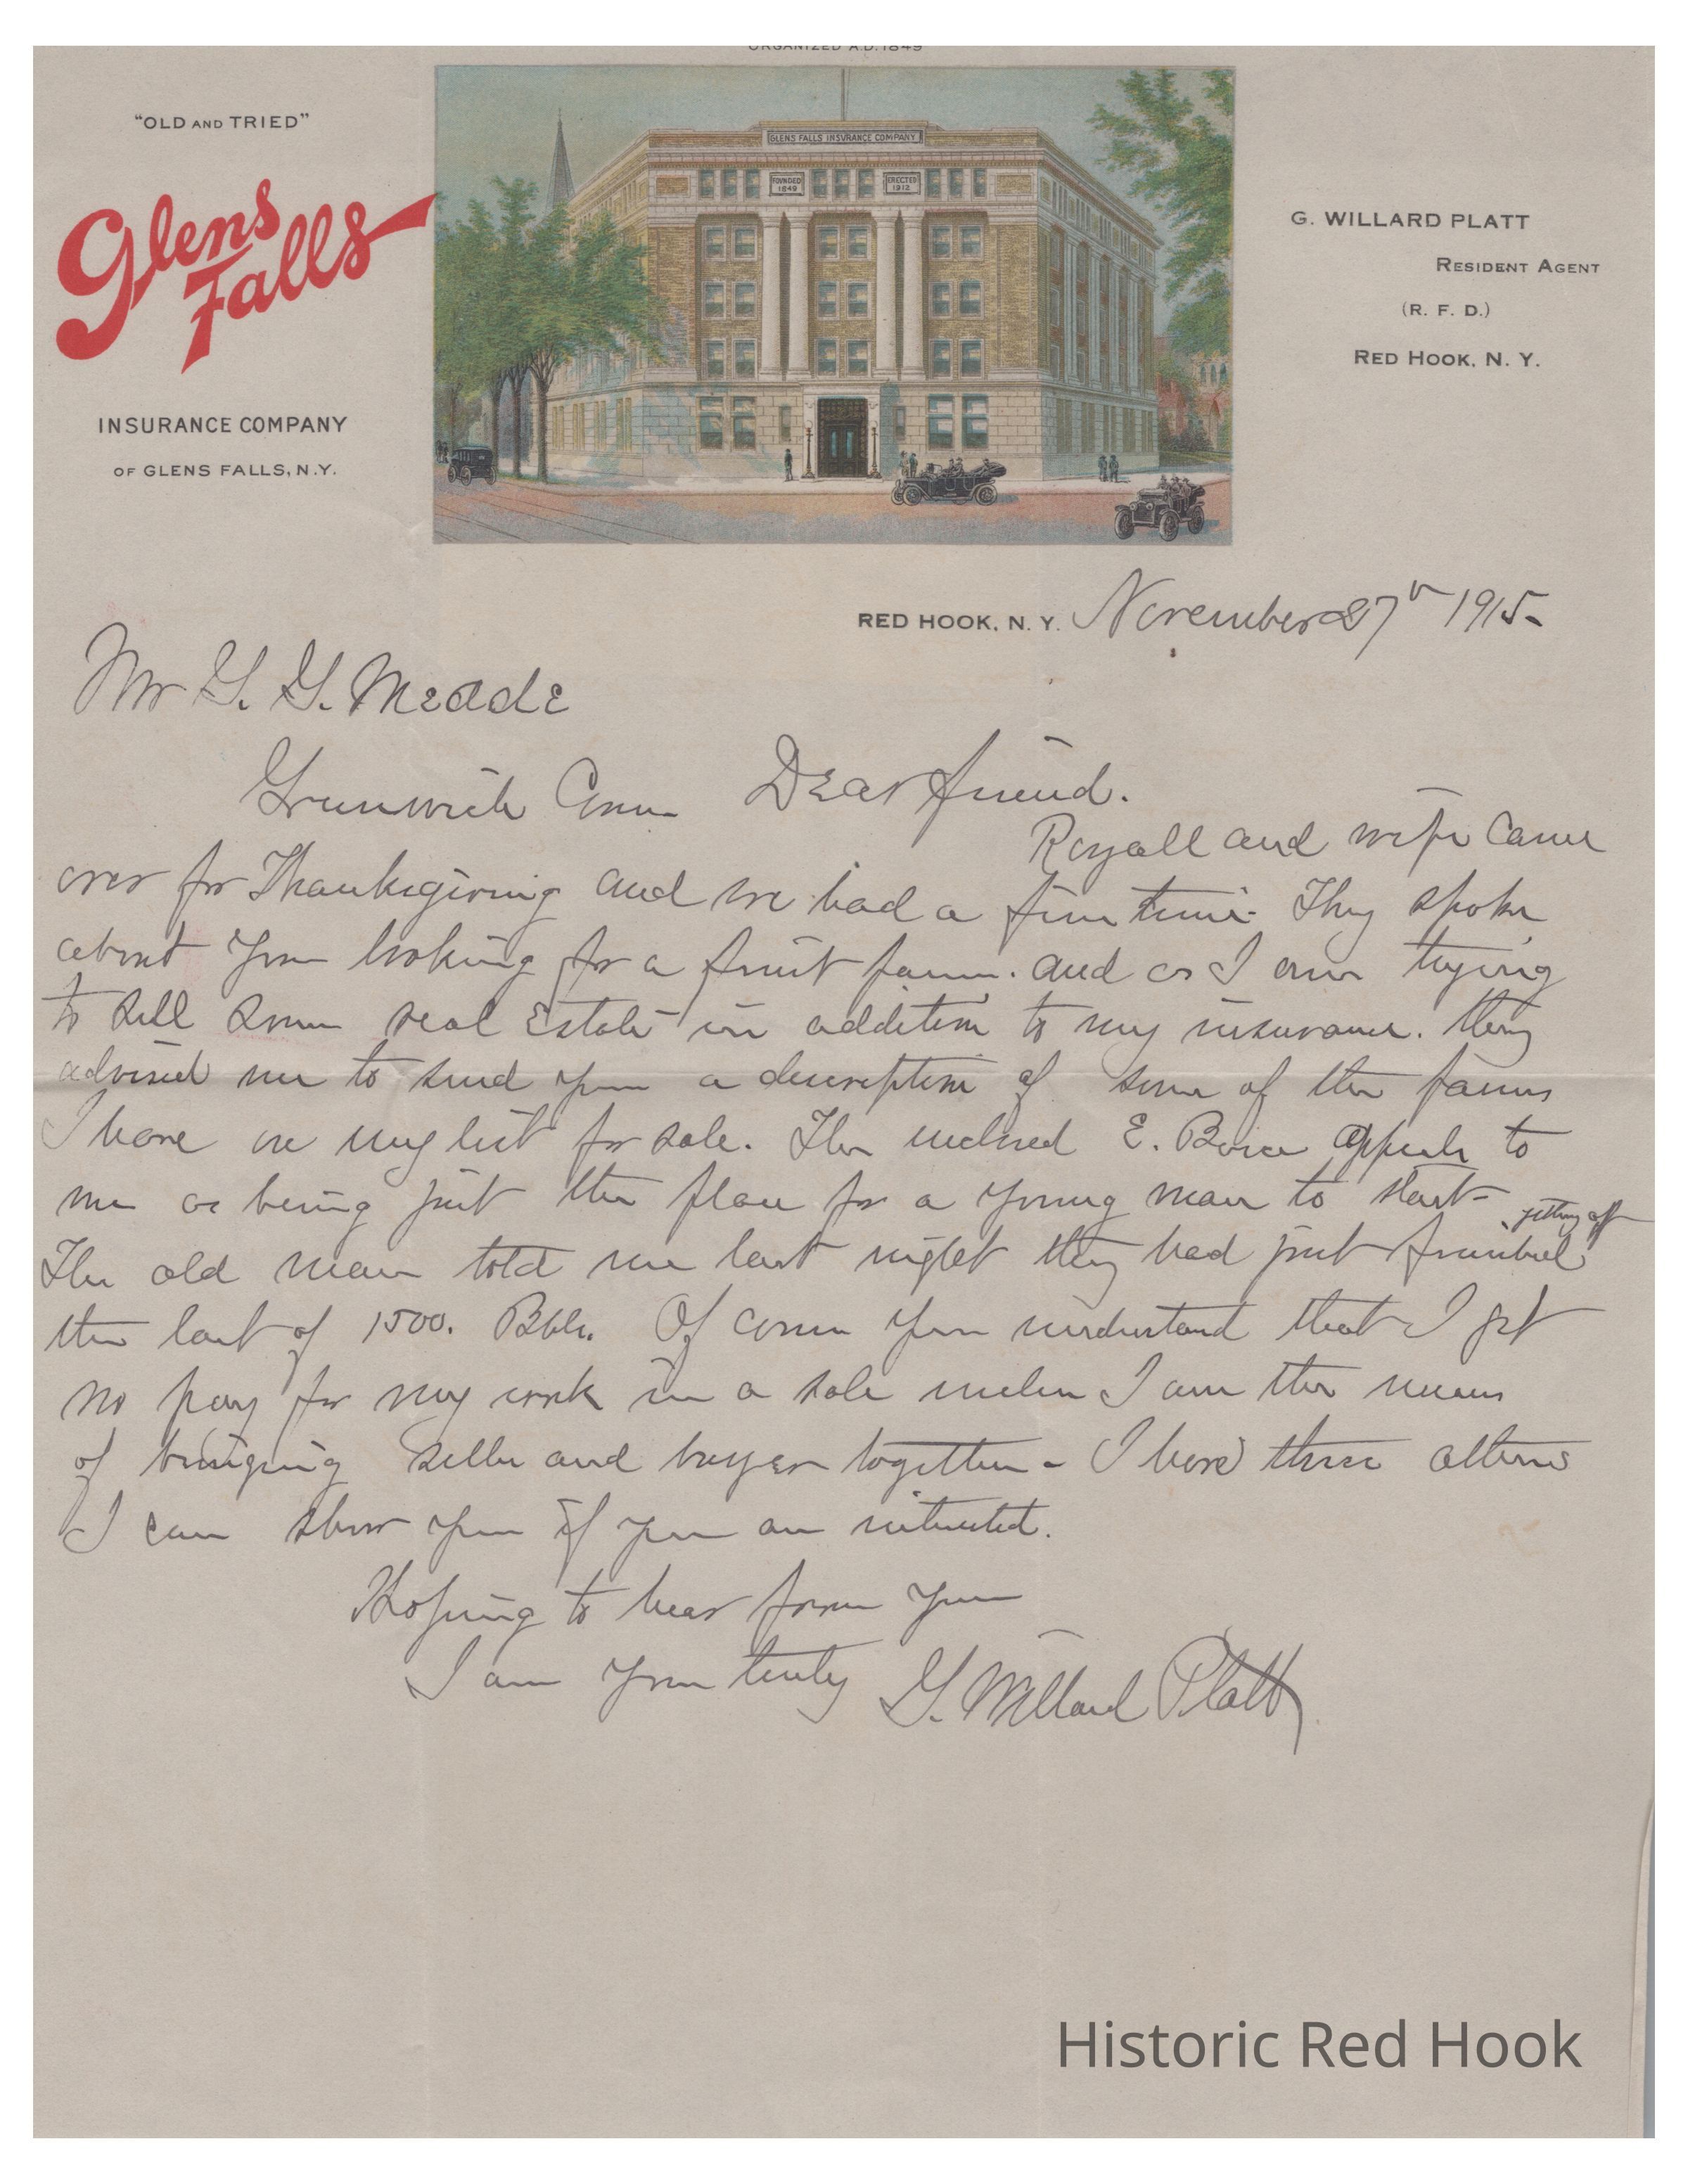 ORGANIZED A.D. 1849
"OLD AND TRIED"
Glens
Falls
INSURANCE COMPANY
OF GLENS FALLS, N.Y.
GLENS FALLS INSURANCE COMPANY
FOUNDED
1849
ERECTED
1912
G. WILLARD PLATT
RESIDENT AGENT
(R. F. D.)
RED HOOK, N. Y.
RED HOOK, N. Y. November 27th 1915-
Mr G. G. Meade
Greenwich Conn Dear friend.
Royall and wife came
over for Thanksgiving and we had a fine time. They spoke
about you looking for a fruit farm. and as I am trying
to sell some real Estate in addition to my insurance. they
advised me to send you a description of some of the farms
I have on my list for sale. The inclosed E. Boice appeals to
me as being just the place for a young man to start-
getting off
The old man told me last night they had just finished
the last of 1500. Bbls. Of course you understand that I get
no pay for my work in a sale unless I am the means
of bringing seller and buyer together - I have three others
I can show you if you are interested.
Hoping to hear from you
I am yours truly G. Willard Platt
Historic Red Hook